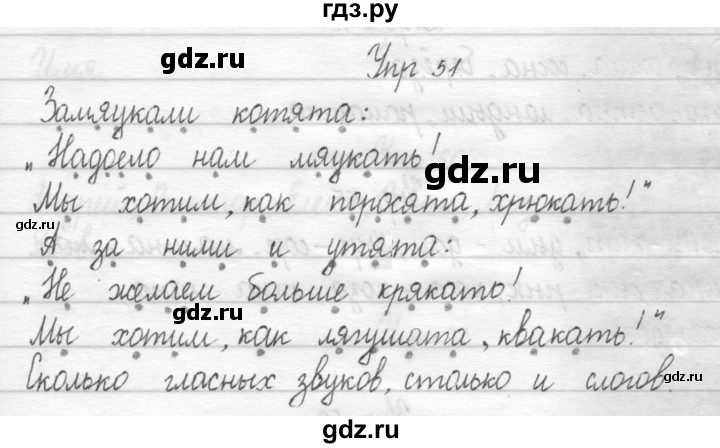 гдз.ру
gdz.ru
Упр 51.
Замяукали котята:
gdz.ru
„Надоело нам мяукать!
gdz.ru
Мы хотим, как поросята, хрюкать!"
gdz.ru
gdz.ru
А за ними и утята:
„Не желаем больше крякать!
gdz.ru
gdz.ru
Мы хотим, как лягушата, квакать!"
Сколько гласных звуков, столько и слогов.
gdz.ru
gdz.ru